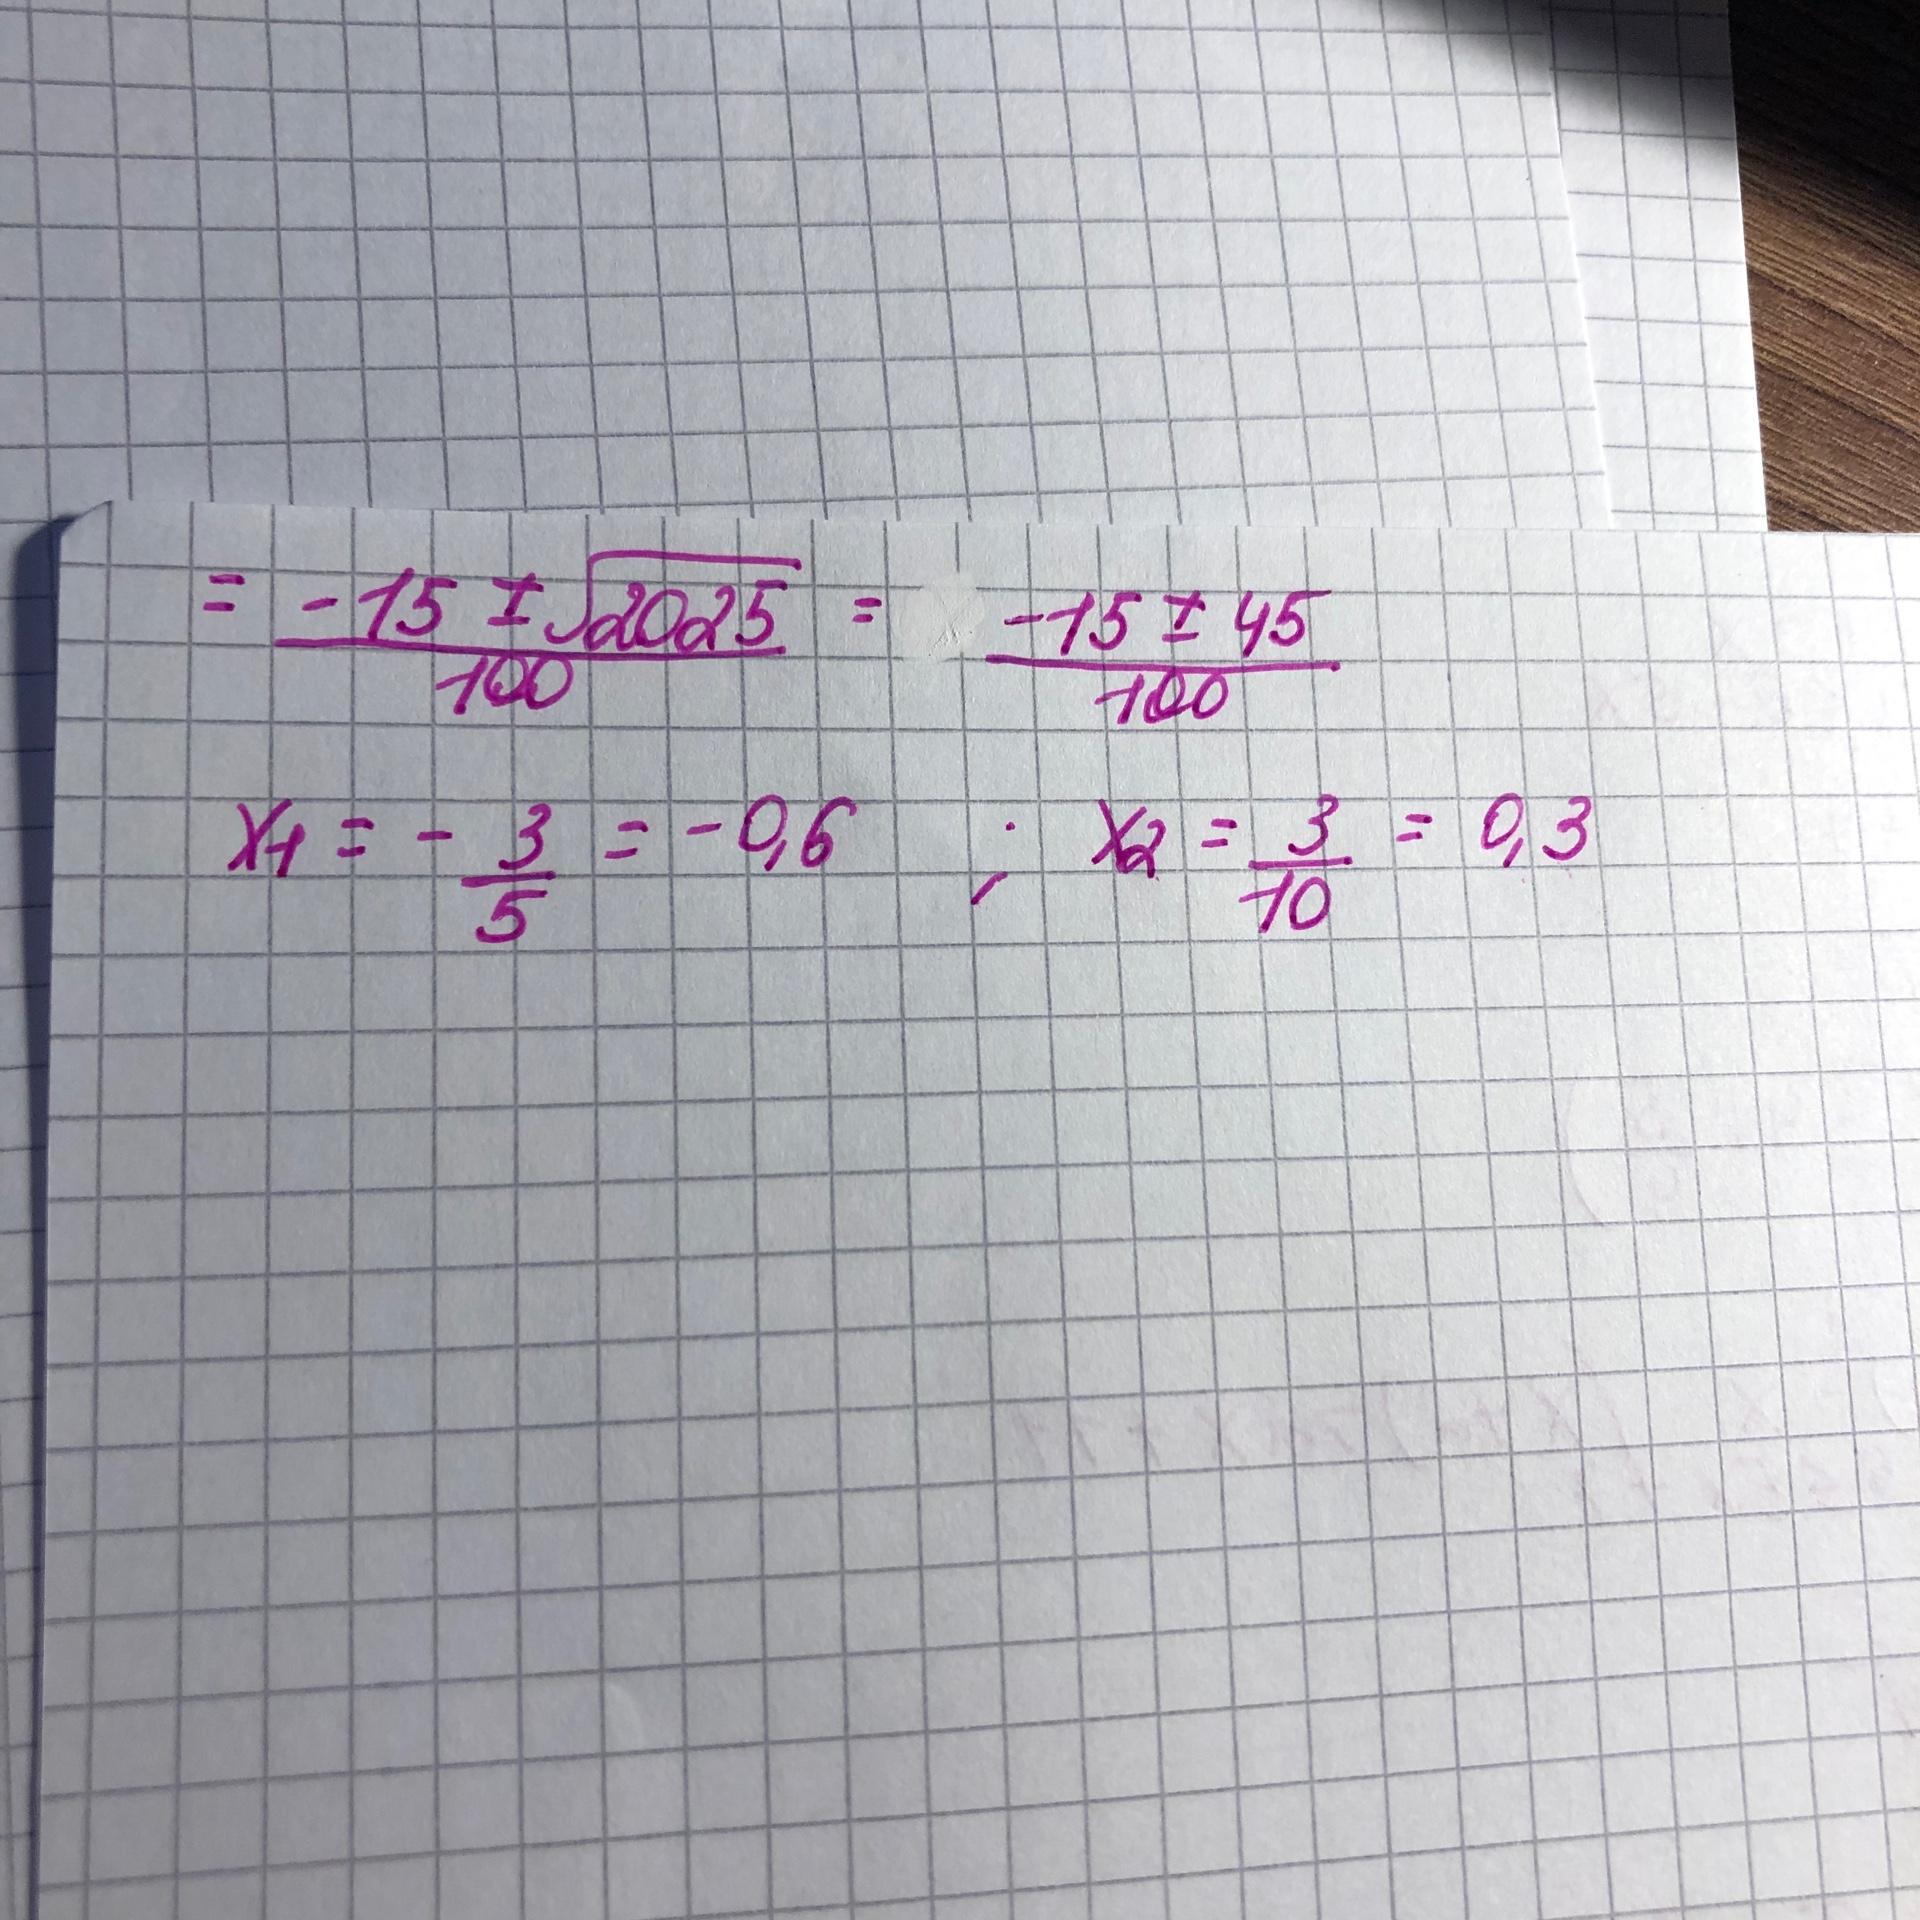 = -15 ± √2025 / 100 = -15 ± 45 / 100
x1 = - 3/5 = -0,6 ; x2 = 3/10 = 0,3